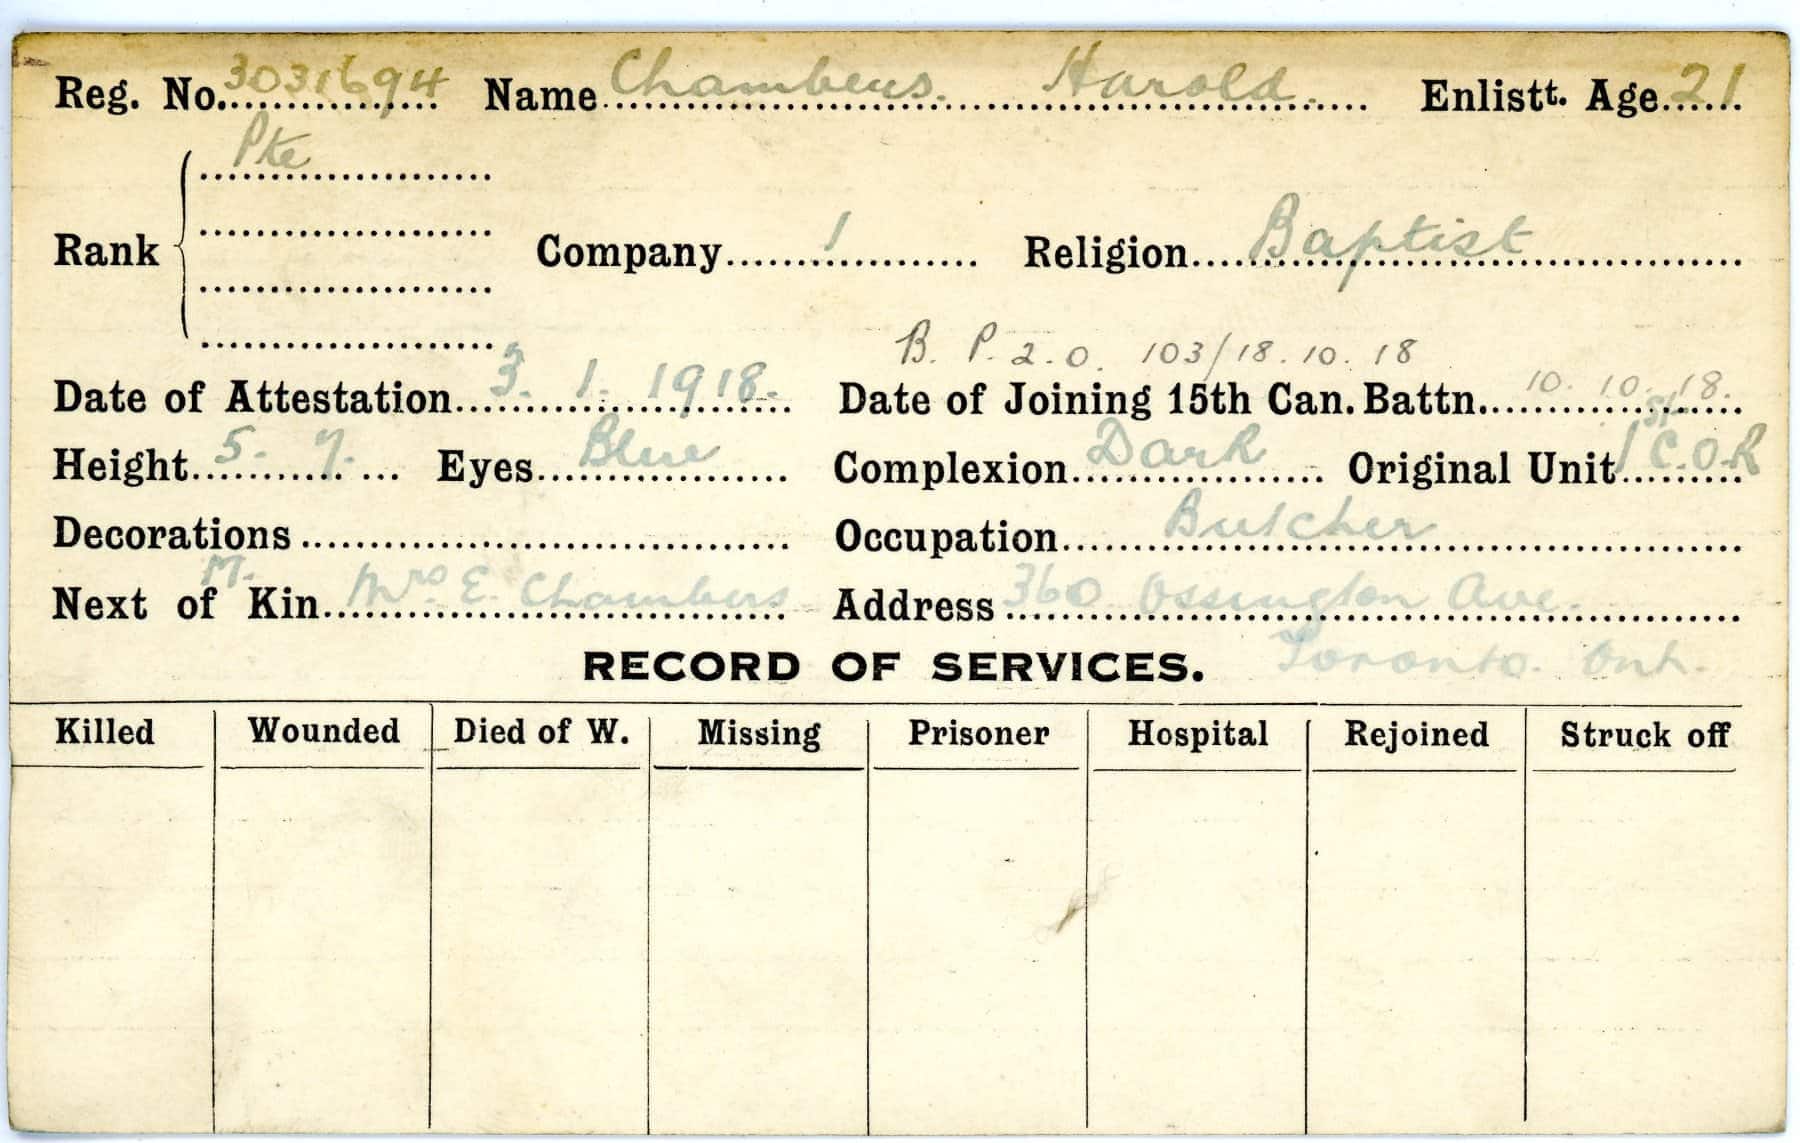 Reg. No. 3031694 Name Chambers. Harold. Enlistt. Age 21
Pte
Rank Company 1 Religion Baptist
B. P. 2. O. 103/18. 10. 18
Date of Attestation 3. 1. 1918. Date of Joining 15th Can. Battn. 10. 10. 18.
Height 5. 7. Eyes Blue Complexion Dark Original Unit 1st C.O.R
Decorations Occupation Butcher
M.
Next of Kin Mrs. E. Chambers Address 360 Ossington Ave.
RECORD OF SERVICES. Toronto. Ont.
Killed Wounded Died of W. Missing Prisoner Hospital Rejoined Struck off